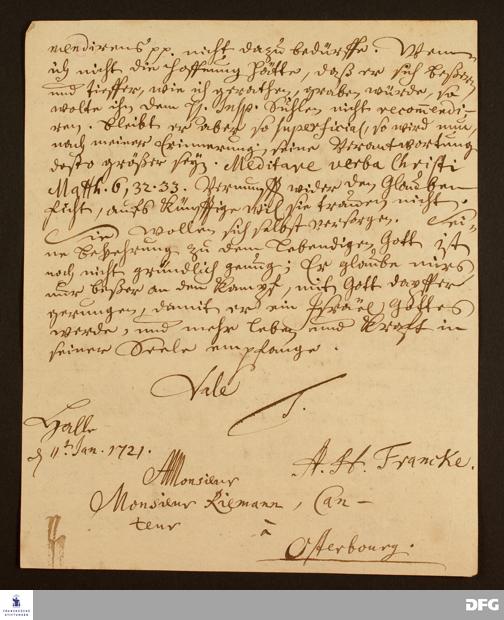 mendirens pp. nicht dazu bedürffe. Wenn
ich nicht die Hoffnung hätte, daß er sich beßern
und tieffer, wie ich gerathen, graben würde, so
wolte ihn dem H. Insp. Sühlen nicht recom̄endi-
ren. Bleibt er aber so superficial, so wird nun
nach meiner Erinnerung seine Verantwortung
desto größer seyn. Meditare verba Christi
Matth. 6, 32. 33. Vernunfft wider den Glauben
ficht, aufs künfftige wil sie trauen nicht.
Sie wollen sich selbst versorgen. Sei-
ne Bekehrung zu dem lebendigen Gott ist
noch nicht gründlich genug; Er glaube mirs
nur beßer an den Kampf, mit Gott dapffer
gerungen, damit er ein Israel Gottes
werde, und mehr Leben und Krafft in
seiner Seele empfange.
Vale
Halle
d 11t Jan. 1721.
A. H. Francke.
A Monsieur
Monsieur Riemann, Can-
teur
à
Osterbourg.
FRANCKESCHE
STIFTUNGEN
DFG